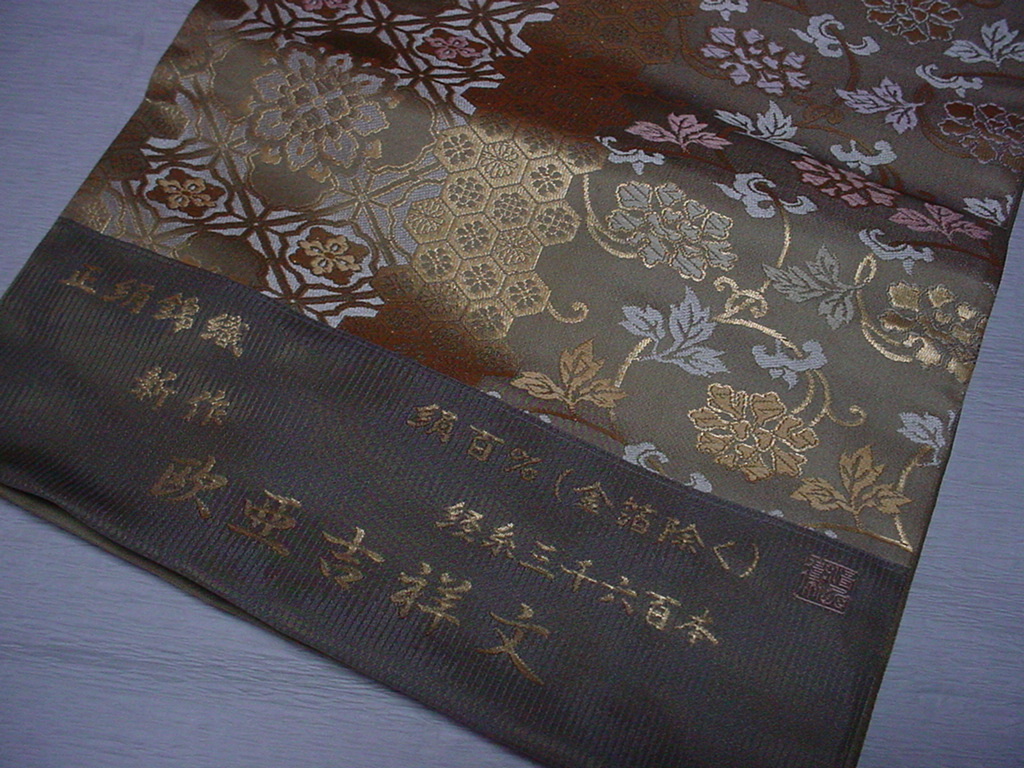 正絹錦織
新作
欧亜吉祥文
絹百%(金箔除く)
経糸三千六百本